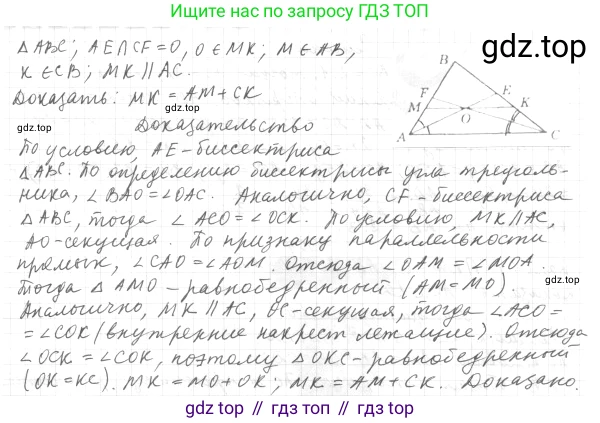 Ищите нас по запросу ГДЗ ТОП
△ABC; AE∩CF=O, O∈MK; M∈AB;
K∈CB; MK∥AC.
Доказать: MK = AM+CK
gdz.top
gdz.top
B
F
E
M
K
O
A
C
Доказательство
По условию, AE-биссектриса
△ABC. По определению биссектрисы угла треуголь-
ника, ∠BAO=∠OAC. Аналогично, CF-биссектриса
△ABC, тогда ∠ACO=∠OCK. По условию, MK∥AC,
AO-секущая. По признаку параллельности
прямых, ∠CAO=∠AOM. Отсюда ∠OAM=∠MOA.
Тогда △AMO-равнобедренный (AM=MO).
Аналогично, MK∥AC, OC-секущая, тогда ∠ACO=
=∠COK (внутренние накрест лежащие). Отсюда
∠OCK=∠COK, поэтому △OKC-равнобедренный
(OK=KC). MK=MO+OK; MK=AM+CK. Доказано.
gdz.top
gdz.top
gdz.top
gdz.top // гдз топ // gdz.top